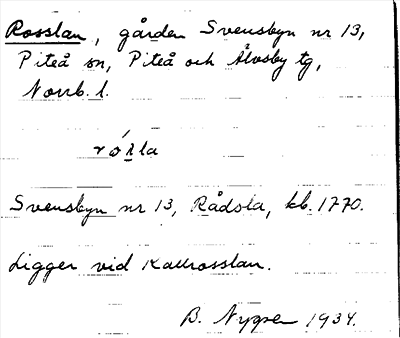 Rosslan, gården Svensbyn nr 13,
Piteå sn, Piteå och Älvsby tg,
Norrb. l.
Svensbyn nr 13, Rådsla, kb. 1770.
Ligger vid Kallrosslan.
B. Nyper 1934.